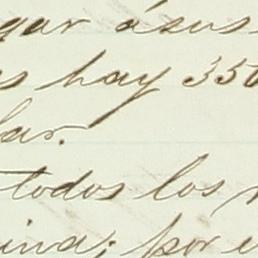 gar ásus
s hay 350
lar.
todos los
ina; por